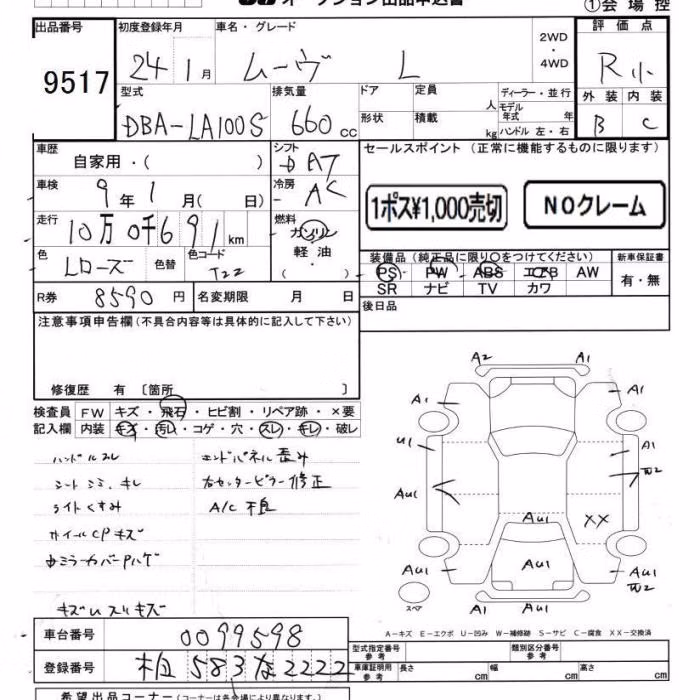 オークション出品申込書
①会場控
出品番号 9517
初度登録年月 24年1月
車名・グレード ムーヴ L
2WD・4WD
評価点 R小
外装 B 内装 C
型式 DBA-LA100S
排気量 660cc
ドア
形状
定員 人
積載 kg
ディーラー・並行
モデル年式 年
ハンドル 左・右
車歴 自家用・( )
シフト DAT
セールスポイント(正常に機能するものに限ります)
車検 9年1月( 日)
冷房 AC
1ポス¥1,000売切
NOクレーム
走行 10万0千691km
燃料 ガソリン・軽油・( )
色 Lローズ 色替
色コード T22
装備品(純正品に限り○をつけてください)
PS PW ABS エアB AW
SR ナビ TV カワ
新車保証書 有・無
R券 8590円
名変期限 月 日
後日品
注意事項申告欄(不具合内容等は具体的に記入して下さい)
修復歴 有 〔箇所 〕
検査員記入欄
FW キズ・飛石・ヒビ割・リペア跡・×要
内装 キズ・汚れ・コゲ・穴・スレ・キレ・破レ
ハンドルスレ
シートシミ、キレ
ライトくすみ
ホイールCPキズ
ミラーカバーPハゲ
キズUスリキズ
エンドパネル歪み
右センターピラー修正
A/C不良
A2 A1
A1 A1
U1 A1
W2
AU1
AU1 XX
AU1
AU1 AU1
W2
AU1
スペア
A-キズ E-エクボ U-凹み W-補修跡 S-サビ C-腐食 XX-交換済
車台番号 0099598
登録番号 583な2222
型式指定番号 参考
類別区分番号 参考
車庫証明用 参考 長さ cm 幅 cm 高さ cm
希望出品コーナー(コーナーは各会場により異なります。)